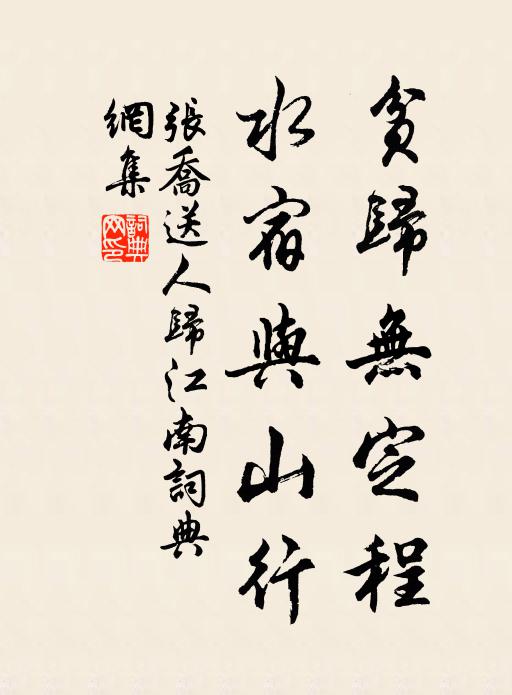 貧歸無定程
水宿與山行
張喬送人歸江南詞典
網集
詞典
网印